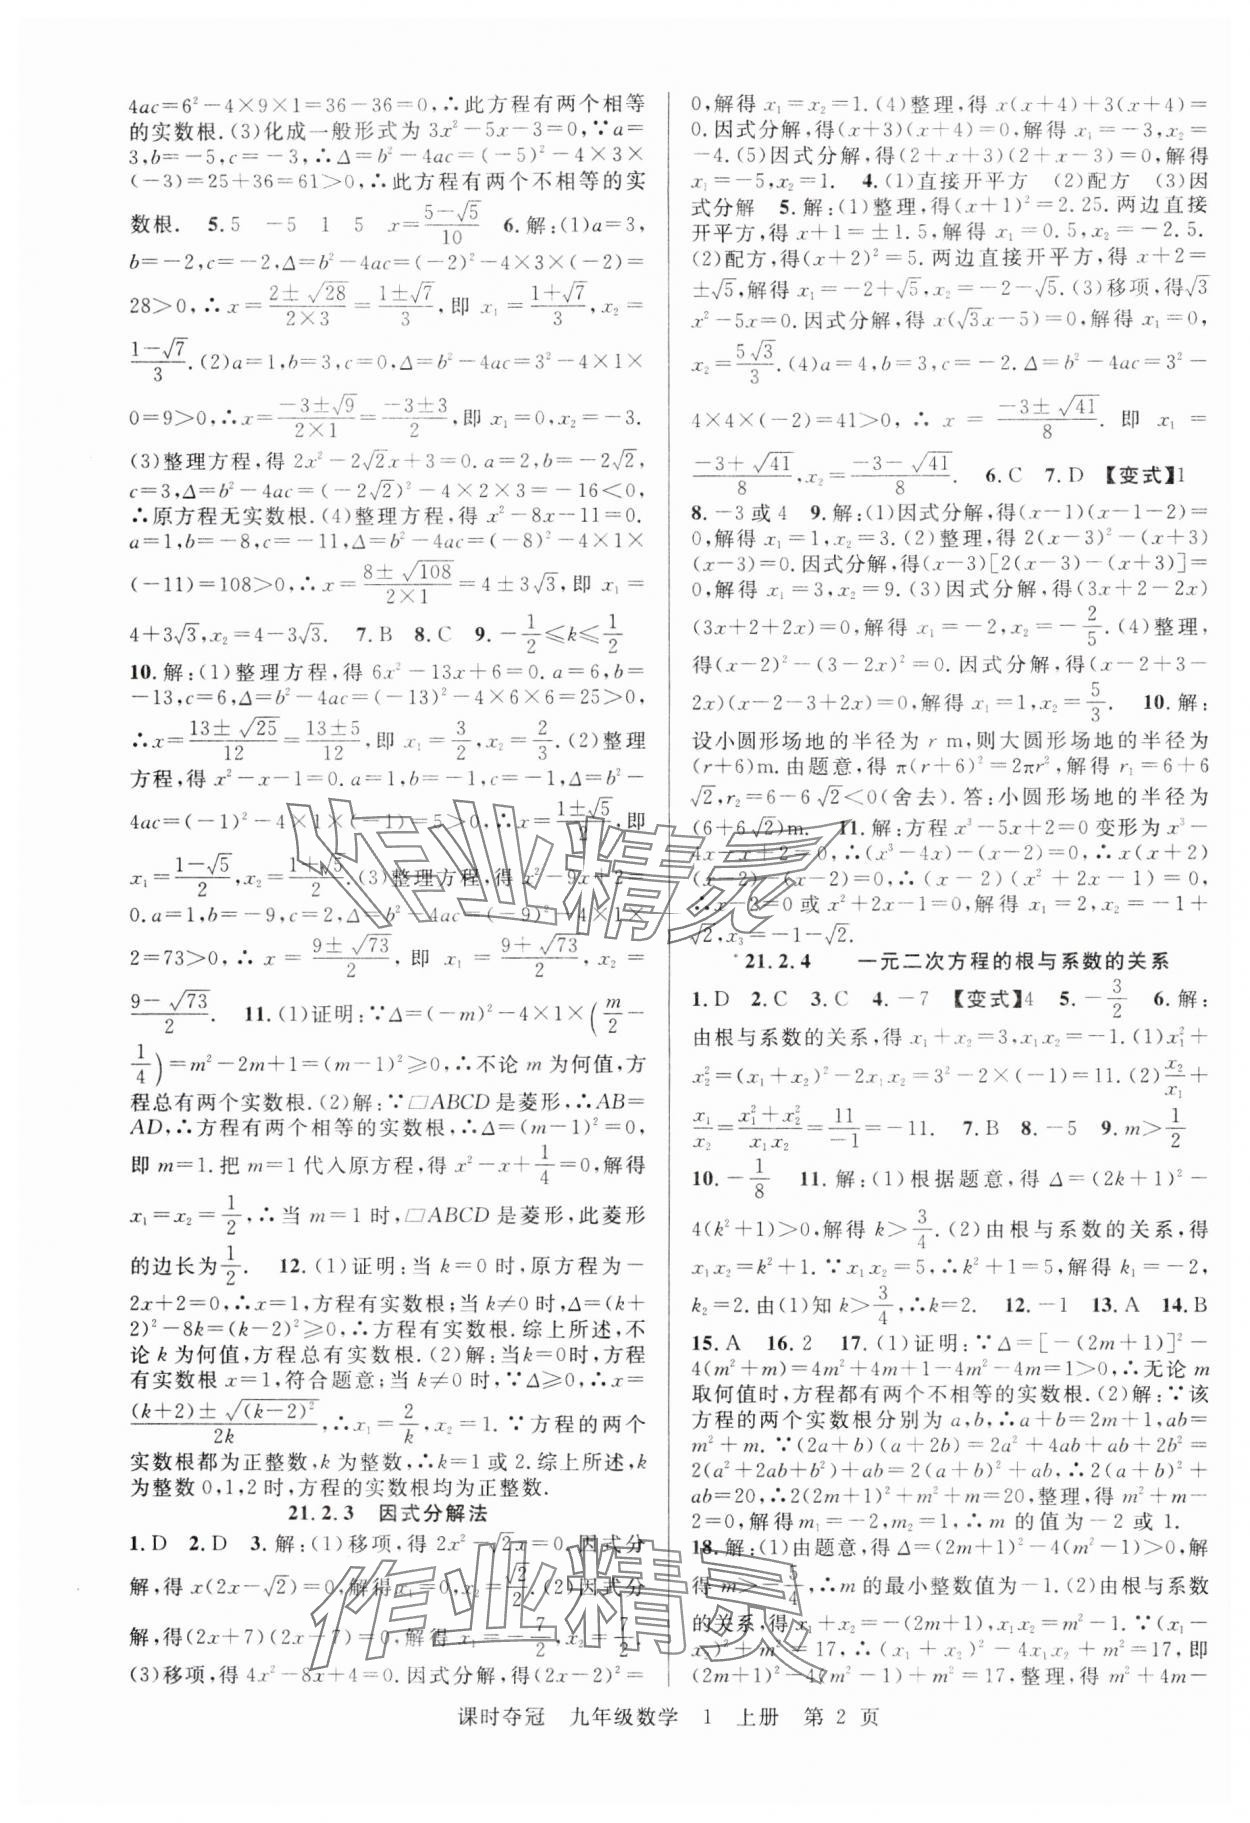 4ac=6²-4×9×1=36-36=0,∴此方程有两个相等
的实数根.(3)化成一般形式为 3x²-5x-3=0,∵a=
3,b=-5,c=-3,∴Δ=b²-4ac=(-5)²-4×3×
(-3)=25+36=61>0,∴此方程有两个不相等的实
数根. 5.5 -5 1 5 x=(5-√5)/10 6.解:(1)a=3,
b=-2,c=-2,Δ=b²-4ac=(-2)²-4×3×(-2)=
28>0,∴x=(2±√28)/(2×3)=(1±√7)/3,即 x₁=(1+√7)/3,x₂=
(1-√7)/3.(2)a=1,b=3,c=0,Δ=b²-4ac=3²-4×1×
0=9>0,∴x=(-3±√9)/(2×1)=(-3±3)/2,即 x₁=0,x₂=-3.
(3)整理方程,得 2x²-2√2x+3=0.a=2,b=-2√2,
c=3,Δ=b²-4ac=(-2√2)²-4×2×3=-16<0,
∴原方程无实数根.(4)整理方程,得 x²-8x-11=0.
a=1,b=-8,c=-11,Δ=b²-4ac=(-8)²-4×1×
(-11)=108>0,∴x=(8±√108)/(2×1)=4±3√3,即 x₁=
4+3√3,x₂=4-3√3. 7.B 8.C 9.-1/2≤k≤1/2
10.解:(1)整理方程,得 6x²-13x+6=0.a=6,b=
-13,c=6,Δ=b²-4ac=(-13)²-4×6×6=25>0,
∴x=(13±√25)/12=(13±5)/12,即 x₁=3/2,x₂=2/3.(2)整理
方程,得 x²-x-1=0.a=1,b=-1,c=-1,Δ=b²-
4ac=(-1)²-4×1×(-1)=5>0,∴x=(1±√5)/2,即
x₁=(1-√5)/2,x₂=(1+√5)/2.(3)整理方程,得 x²-9x+2=
0.a=1,b=-9,c=2,Δ=b²-4ac=(-9)²-4×1×
2=73>0,∴x=(9±√73)/2,即 x₁=(9+√73)/2,x₂=
(9-√73)/2. 11.(1)证明:∵Δ=(-m)²-4×1×(m/2-
1/4)=m²-2m+1=(m-1)²≥0,∴不论 m 为何值,方
程总有两个实数根.(2)解:∵□ABCD 是菱形,∴AB=
AD,∴方程有两个相等的实数根,∴Δ=(m-1)²=0,
即 m=1.把 m=1 代入原方程,得 x²-x+1/4=0,解得
x₁=x₂=1/2,∴当 m=1 时,□ABCD 是菱形,此菱形
的边长为1/2. 12.(1)证明:当 k=0 时,原方程为-
2x+2=0,∴x=1,方程有实数根;当 k≠0 时,Δ=(k+
2)²-8k=(k-2)²≥0,∴方程有实数根.综上所述,不
论 k 为何值,方程总有实数根.(2)解:当 k=0 时,方程
有实数根 x=1,符合题意;当 k≠0 时,∵Δ≥0,∴x=
((k+2)±√(k-2)²)/2k,∴x₁=2/k,x₂=1.∵方程的两个
实数根都为正整数,k 为整数,∴k=1或2.综上所述,k
为整数 0,1,2 时,方程的实数根均为正整数.
21.2.3 因式分解法
1.D 2.D 3.解:(1)移项,得 2x²-√2x=0.因式分
解,得 x(2x-√2)=0,解得 x₁=0,x₂=√2/2.(2)因式分
解,得(2x+7)(2x-7)=0,解得 x₁=-7/2,x₂=7/2.
(3)移项,得 4x²-8x+4=0.因式分解,得(2x-2)²=
0,解得 x₁=x₂=1.(4)整理,得 x(x+4)+3(x+4)=
0.因式分解,得(x+3)(x+4)=0,解得 x₁=-3,x₂=
-4.(5)因式分解,得(2+x+3)(2-x-3)=0,解得
x₁=-5,x₂=-1. 4.(1)直接开平方 (2)配方 (3)因
式分解 5.解:(1)整理,得(x+1)²=2.25.两边直接
开平方,得 x+1=±1.5,解得 x₁=0.5,x₂=-2.5.
(2)配方,得(x+2)²=5.两边直接开平方,得 x+2=
±√5,解得 x₁=-2+√5,x₂=-2-√5.(3)移项,得√3
x²-5x=0.因式分解,得 x(√3x-5)=0,解得 x₁=0,
x₂=5√3/3.(4)a=4,b=3,c=-2.Δ=b²-4ac=3²-
4×4×(-2)=41>0,∴x=(-3±√41)/8.即 x₁=
(-3+√41)/8,x₂=(-3-√41)/8. 6.C 7.D 【变式】1
8.-3 或 4 9.解:(1)因式分解,得(x-1)(x-1-2)=
0,解得 x₁=1,x₂=3.(2)整理,得 2(x-3)²-(x+3)
(x-3)=0.因式分解,得(x-3)[2(x-3)-(x+3)]=
0,解得 x₁=3,x₂=9.(3)因式分解,得(3x+2-2x)
(3x+2+2x)=0,解得 x₁=-2,x₂=-2/5.(4)整理,
得(x-2)²-(3-2x)²=0.因式分解,得(x-2+3-
2x)(x-2-3+2x)=0,解得 x₁=1,x₂=5/3. 10.解:
设小圆形场地的半径为 r m,则大圆形场地的半径为
(r+6)m.由题意,得 π(r+6)²=2πr²,解得 r₁=6+6
√2,r₂=6-6√2<0(舍去).答:小圆形场地的半径为
(6+6√2)m. 11.解:方程 x³-5x+2=0 变形为 x³-
4x-x+2=0,∴(x³-4x)-(x-2)=0,∴x(x+2)
(x-2)-(x-2)=0,∴(x-2)(x²+2x-1)=0,
∴x-2=0 或 x²+2x-1=0,解得 x₁=2,x₂=-1+
√2,x₃=-1-√2.
21.2.4 一元二次方程的根与系数的关系
1.D 2.C 3.C 4.-7 【变式】4 5.-3/2 6.解:
由根与系数的关系,得 x₁+x₂=3,x₁x₂=-1.(1)x₁²+
x₂²=(x₁+x₂)²-2x₁x₂=3²-2×(-1)=11.(2)x₂/x₁+
x₁/x₂=(x₁²+x₂²)/(x₁x₂)=11/(-1)=-11. 7.B 8.-5 9.m>1/2
10.-1/8 11.解:(1)根据题意,得 Δ=(2k+1)²-
4(k²+1)>0,解得 k>3/4.(2)由根与系数的关系,得
x₁x₂=k²+1.∵x₁x₂=5,∴k²+1=5,解得 k₁=-2,
k₂=2.由(1)知 k>3/4,∴k=2. 12.-1 13.A 14.B
15.A 16.2 17.(1)证明:∵Δ=[-(2m+1)]²-
4(m²+m)=4m²+4m+1-4m²-4m=1>0,∴无论 m
取何值时,方程都有两个不相等的实数根.(2)解:∵该
方程的两个实数根分别为 a,b,∴a+b=2m+1,ab=
m²+m.∵(2a+b)(a+2b)=2a²+4ab+ab+2b²=
2(a²+2ab+b²)+ab=2(a+b)²+ab,∴2(a+b)²+
ab=20,∴2(2m+1)²+m²+m=20,整理,得 m²+m-
2=0,解得m₁=-2,m₂=1,∴m 的值为-2 或 1.
18.解:(1)由题意,得 Δ=(2m+1)²-4(m²-1)>0,解
得 m>-5/4,∴m 的最小整数值为-1.(2)由根与系数
的关系,得 x₁+x₂=-(2m+1),x₁x₂=m²-1.∵(x₁-
x₂)²+m²=17,∴(x₁+x₂)²-4x₁x₂+m²=17,即
(2m+1)²-4(m²-1)+m²=17,整理,得 m²+4m-
课时夺冠 九年级数学 1 上册 第 2 页
作业精灵
作业精灵